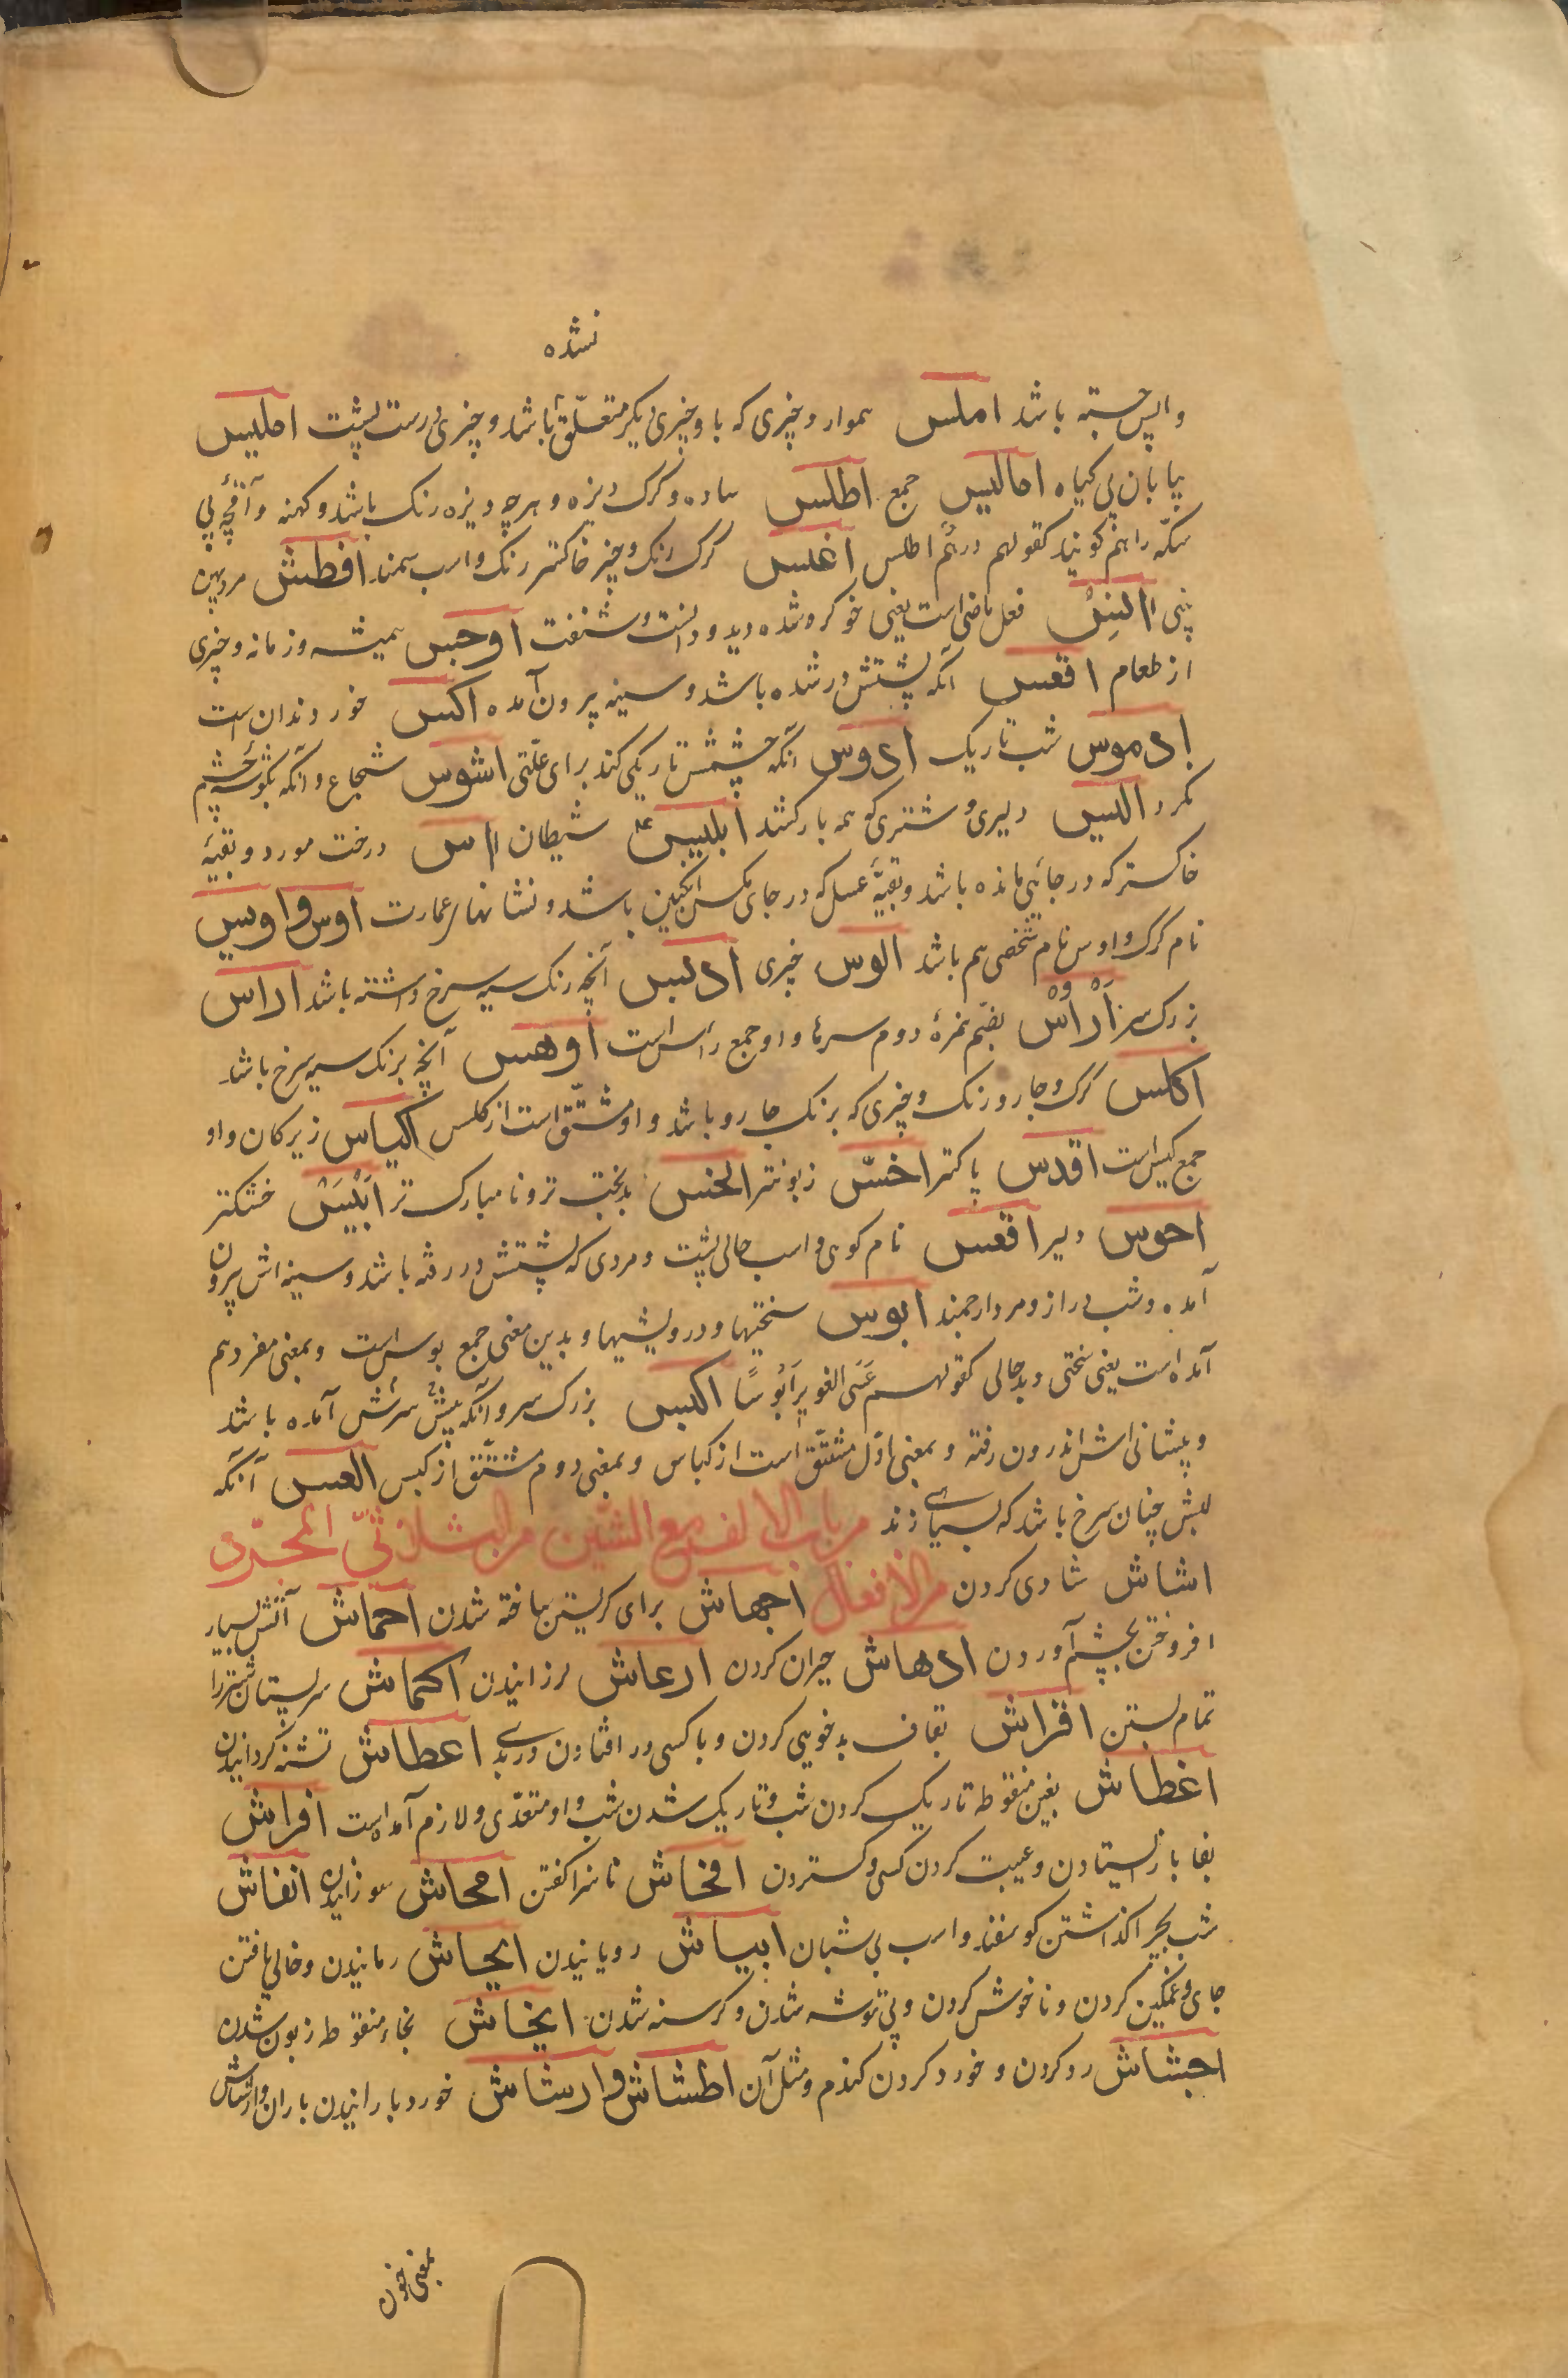 نشده
واپس جسته باشد املس هموار و چیزی که با و چیزی دیگر متعلّق باشد و چیزی درست پشت املیس
بیابان بی کیاه امالیس جمع اطلس ساده و کرک دیزه و هرچه دیزه رنک باشد و کهنه و آقچهٔ بی
سکّه را هم کویند کقولهم درهم اطلس اغلس کرک رنک و چیز خاکستر رنک و اسب سمند افطش مرد پهن
بینی اانِسْ فعل ماضی است یعنی خو کرد شده دید و دانست و شنفت اوجس همیشه و زمانه و چیزی
از طعام اقعس آنکه پشتش در شده باشد و سینه بیرون آمده اکس خورد دندان است
ادموس شب تاریک ادوس آنکه چشمش تاریکی کند برای علّتی اشوس شجاع و آنکه بکوشهٔ چشم
نکرد الیس دلیری و شتری که همه بار کشد ابلیس شیطان ااس درخت مورد و بقیهٔ
خاکستر که در جائی مانده باشد و بقیهٔ عسل که در جای مکس انکبین باشد و نشانهای عمارت اوس و اویس
نام کرک و اوس نام شخصی هم باشد الوس چیزی ادلس آنچه رنک سیه سرخ داشته باشد اراس
بزرک سر اَرْاُسْ بضمّ همزهٔ دوم سرها و او جمع رأس است اوهس آنچه برنک سیه سرخ باشد
اکلس کرک و جارو رنک و چیزی که برنک جارو باشد و او مشتّق است از کلس اکیاس زیرکان و او
جمع کیس است اقدس پاکتر اخسّ زبونتر انحس بدبخت تر و نامبارک تر اَیْبَسْ خشکتر
احوس دلیر اقعس نام کوهی و اسب حالی پشت و مردی که پشتش در رفته باشد و سینه اش بیرون
آمده و شب دراز و مرد ارجمند ابوس سختیها و درویشیها و بدین معنی جمع بوس است و بمعنی مفرد هم
آمده است یعنی سختی و بدحالی کقولهم عَسَی الغویر اَبْوسًا اکبس بزرک سر و آنکه پیش سرش آمده باشد
و پیشانی اش اندرون رفته و بمعنی اوّل مشتّق است از کباس و بمعنی دوم مشتّق از کبس العس آنکه
لبش چنان سرخ باشد که بسیاهی زند من باب الالف مع الشین من الثلاثیّ المجرّد
اشاش شادی کردن من الافعال اجهاش برای کریستن ساخته شدن احماش آتش بسیار
افروختن بخشم آوردن ادهاش حیران کردن ارعاش لرزانیدن اکماش سر پستان شتر را
تمام بستن اقراش بقاف بدخویی کردن و با کسی در افتادن در بدی اعطاش تشنه کردانیدن
اغطاش بغین منقوطه تاریک کردن شب و تاریک شدن شب و او متعدّی و لازم آمده است افراش
بفا باز ایستادن و عیبت کردن کسی و کستردن افحاش ناسزا کفتن امحاش سوزانیدن انفاش
شب بچرا کذاشتن کوسفند و اسب بی شبان ابیاش رویانیدن ایحاش رمانیدن و خالی یافتن
جای و غمکین کردن و ناخوش کردن و بی توشه شدن و کرسنه شدن ایخاش بخاء منقوطه زبون شدن
اجشاش رد کردن و خورد کردن کندم و مثل آن اطشاش و ارشاش خورد بارانیدن باران و ارشاش
بمعنی خون